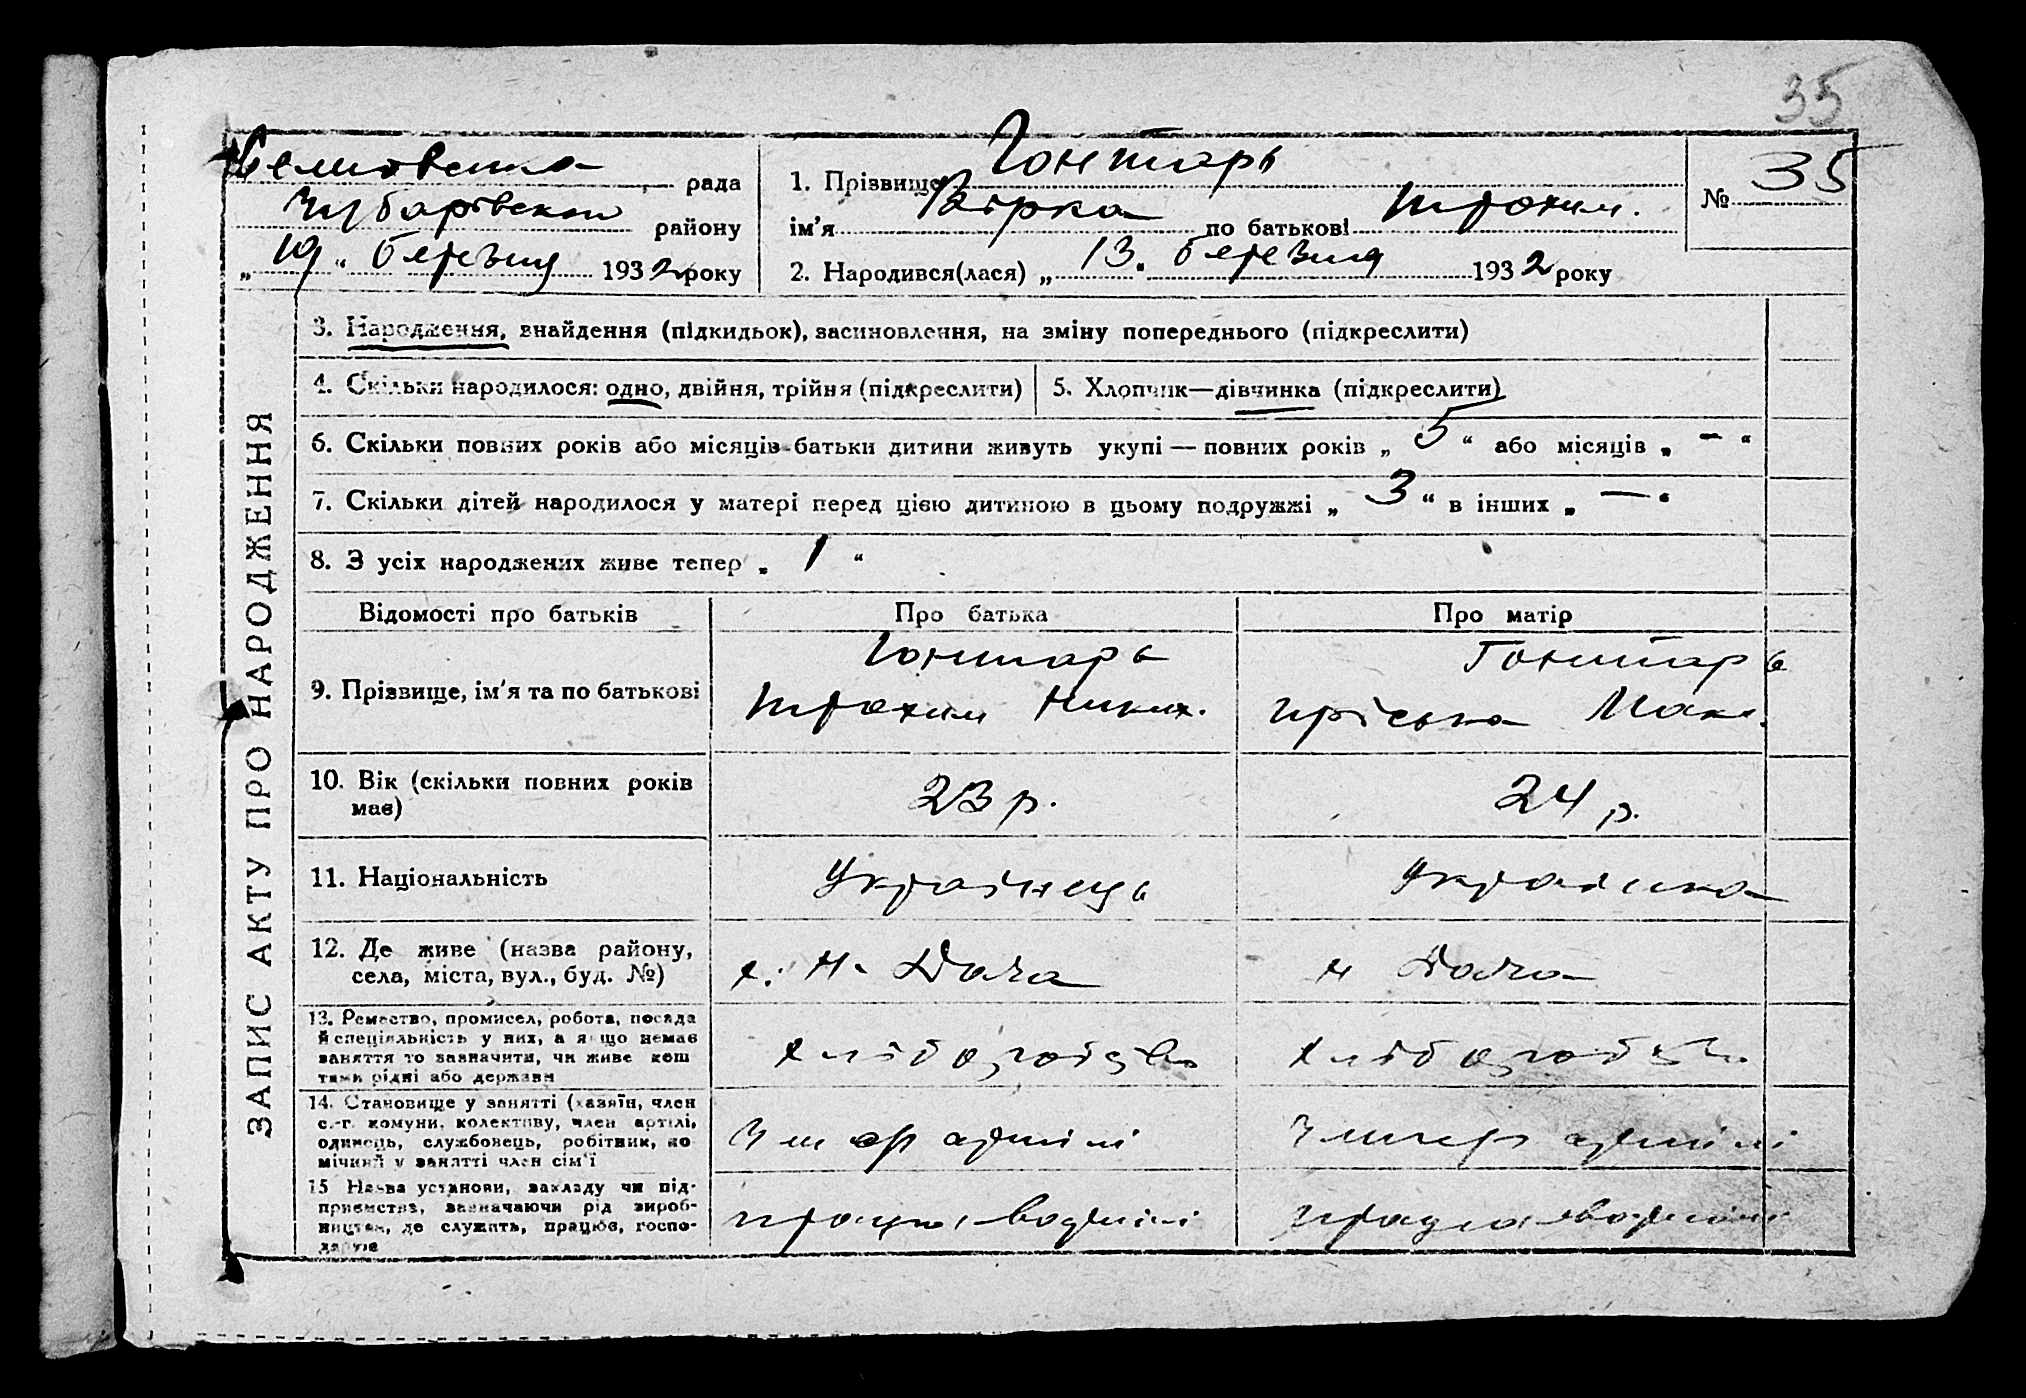 35
рада
Чубарівского району
„19“ березня 1932 року
1. Прізвище Гонтарь
ім'я Вірка по батькові Трохим.
2. Народився(лася) „13. березня 1932 року
№ 35
ЗАПИС АКТУ ПРО НАРОДЖЕННЯ
3. Народження, внайдення (підкидьок), засиновлення, на зміну попереднього (підкреслити)
4. Скільки народилося: одно, двійня, трійня (підкреслити)
5. Хлопчик—дівчинка (підкреслити)
6. Скільки повних років або місяців батьки дитини живуть укупі — повних років „ 5 “ або місяців „ — “
7. Скільки дітей народилося у матері перед цією дитиною в цьому подружжі „ 3 “ в інших „ — “
8. З усіх народжених живе тепер „ 1 “
Відомості про батьків
Про батька
Про матір
9. Прізвище, ім'я та по батькові
Гонтарь
Трохим Никих.
Гонтарь
Пріська Мак.
10. Вік (скільки повних років
має)
23 р.
24 р.
11. Національність
Українець
Українка
12. Де живе (назва району,
села, міста, вул., буд. №)
х. Н. Дача
Н Дача
13. Ремество, промисел, робота, посада
й спеціяльність у них, а якщо немає
заняття то зазначити, чи живе кош
тами рідні або держави
хліборобство
хліборобство
14. Становище у занятті (хазяїн, член
с.-г. комуни, колективу, член артілі,
одинець, службовець, робітник, по
мічний у занятті член сім'ї
член артілі
член артілі
15 Назва установи, закладу чи під-
приємства, зазначаючи рід вироб-
ництва, де служить, працює, госпо-
дарює
працює в артілі
працює в артілі